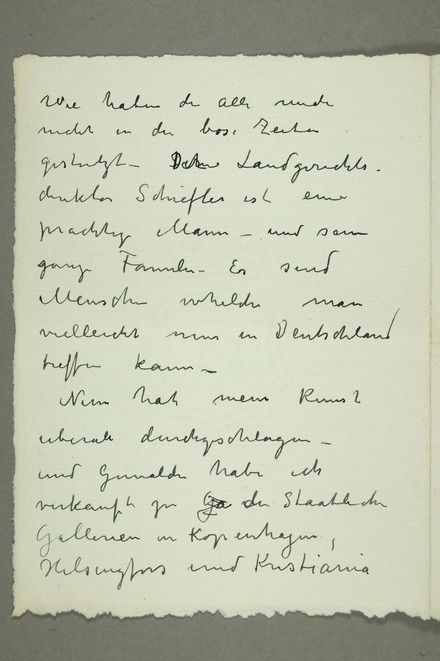 Wie haben die alle mich
nicht in der böse Zeiten
gestützt – Landgerichts-
direktor Schiefler ist eine
prachtige Mann – und sein
ganze Familie – Es sind
Menschen whelche man
vielleicht nur in Deutschland
treffen kann –
Nun hat mein Kunst
uberall durchgeschlagen –
und Gemalde habe ich
verkauft zu die Staatliche
Gallerien in Kopenhagen,
Helsingfors und Kristiania